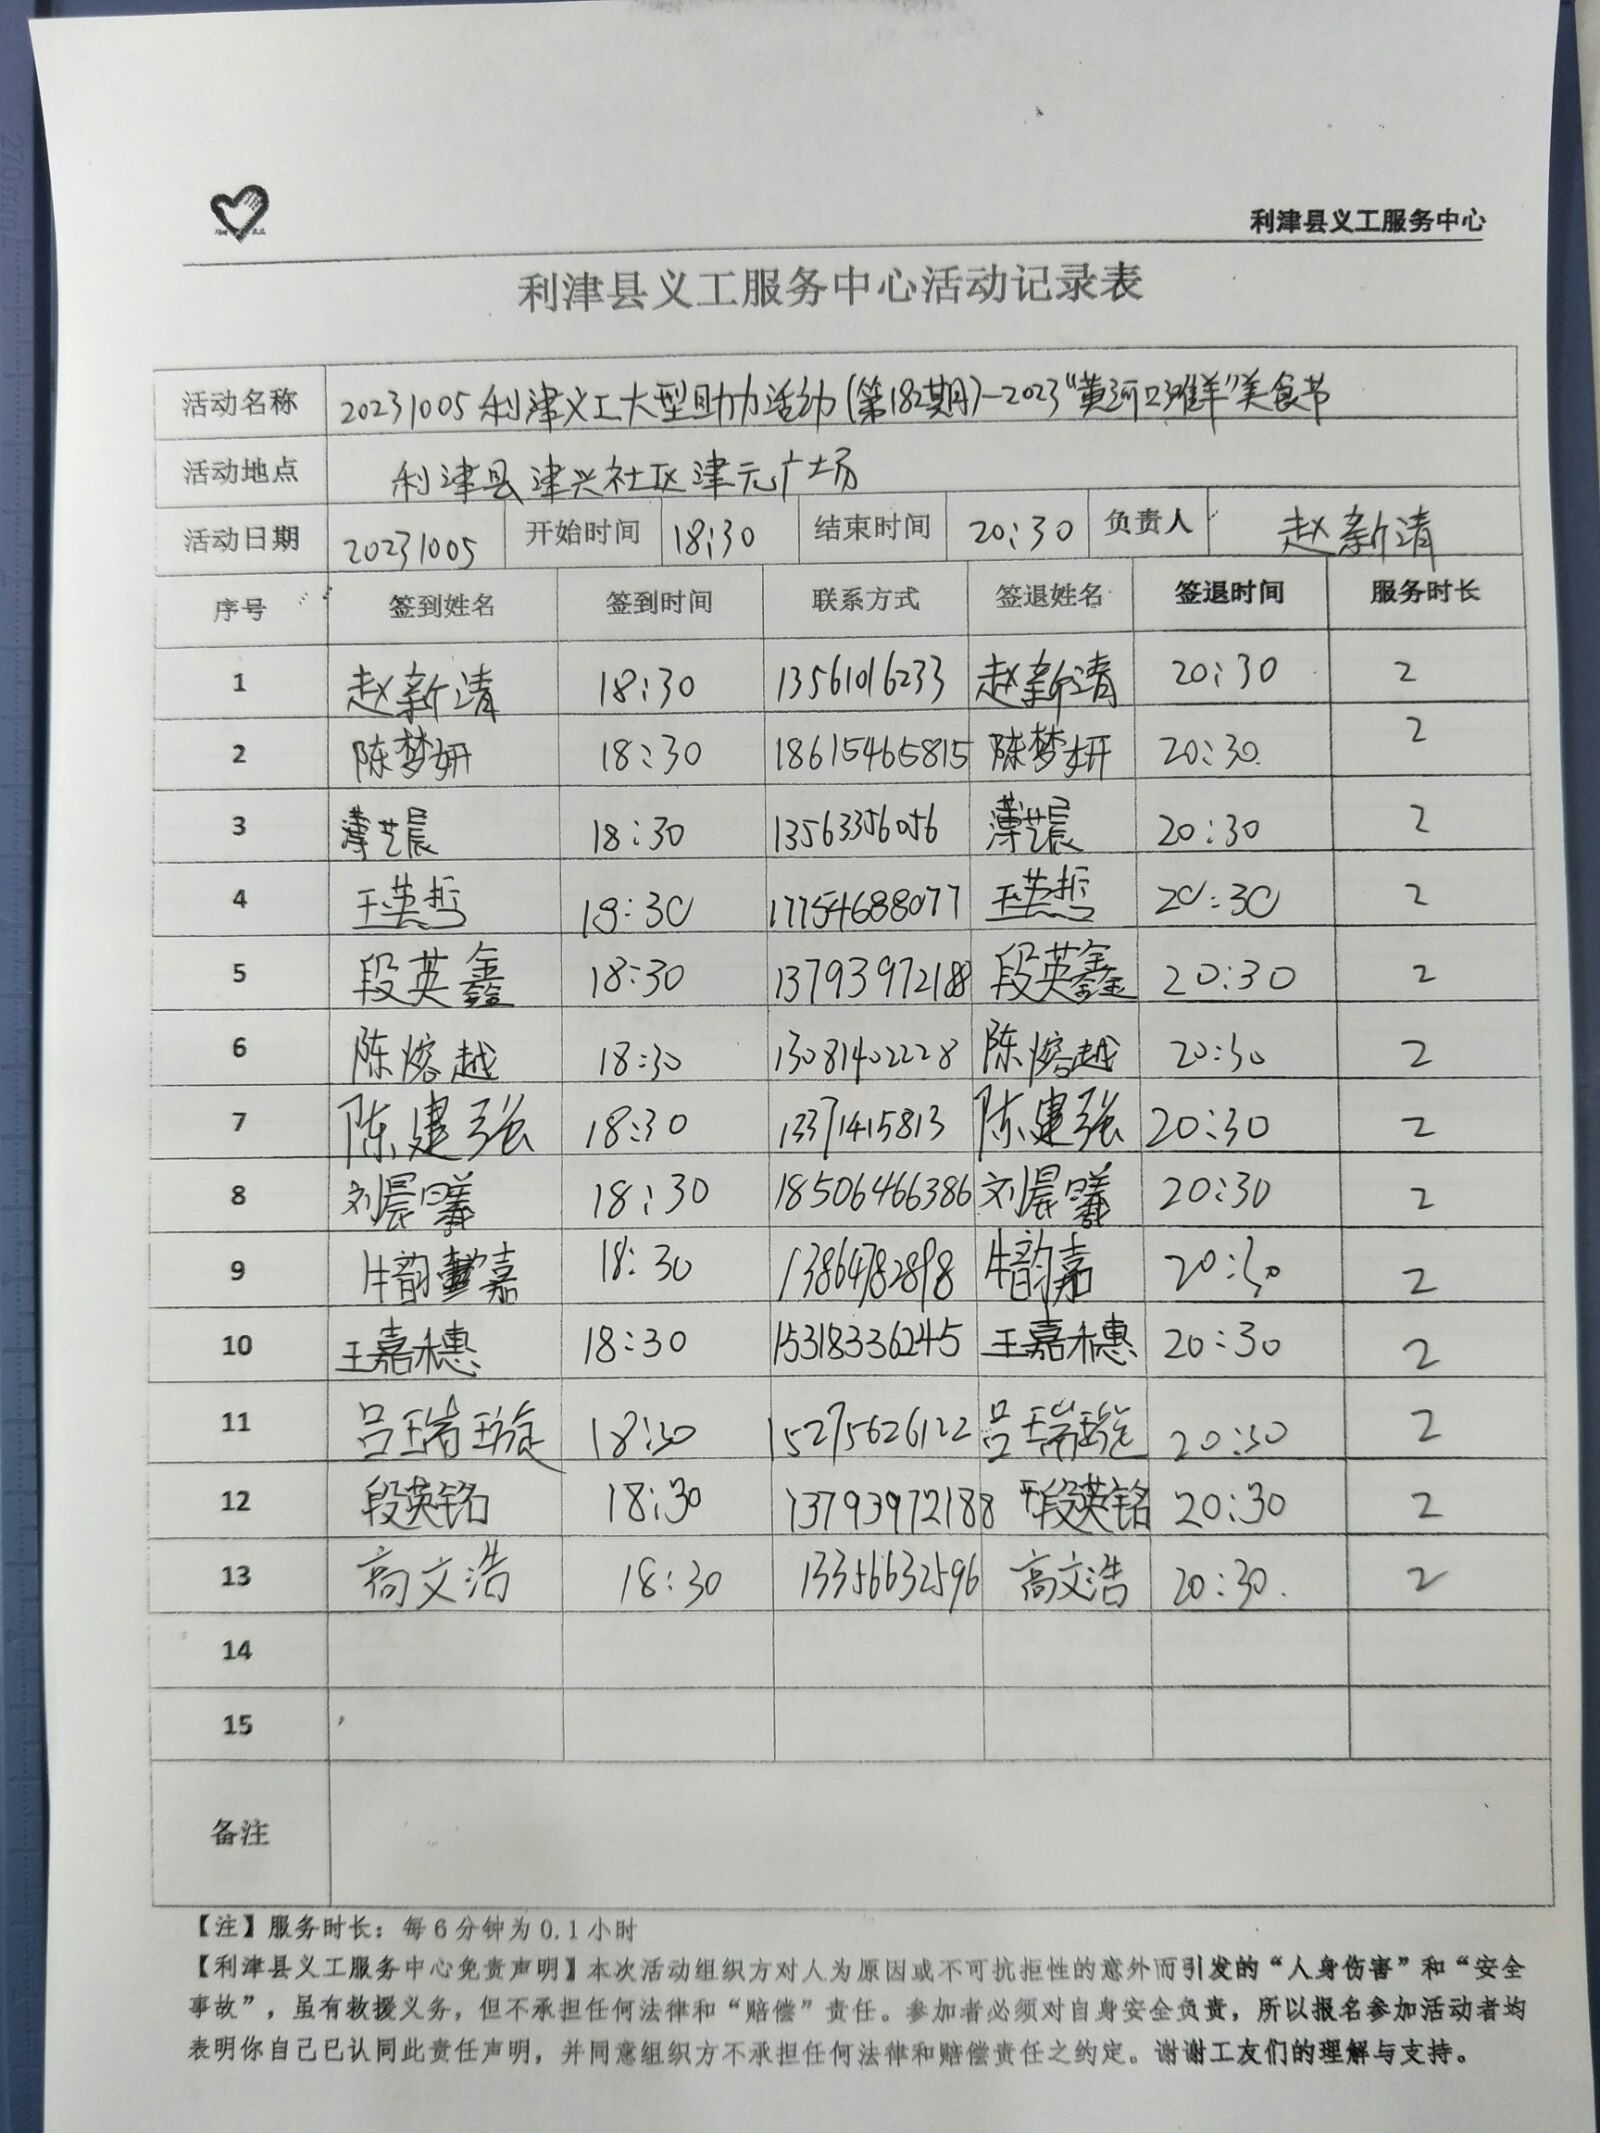 利津县义工服务中心
利津县义工服务中心活动记录表
活动名称 20231005利津义工大型助力活动(第182期)-2023“黄河口滩羊”美食节
活动地点 利津县津兴社区津元广场
活动日期 20231005 开始时间 18:30 结束时间 20:30 负责人 赵新清
序号 签到姓名 签到时间 联系方式 签退姓名 签退时间 服务时长
1 赵新清 18:30 13561016233 赵新清 20:30 2
2 陈梦妍 18:30 18615465815 陈梦妍 20:30 2
3 薄艺晨 18:30 13563356056 薄艺晨 20:30 2
4 王英哲 18:30 17754688077 王英哲 20:30 2
5 段英鑫 18:30 13793972188 段英鑫 20:30 2
6 陈熔越 18:30 13081402228 陈熔越 20:30 2
7 陈建强 18:30 13371415813 陈建强 20:30 2
8 刘晨曦 18:30 18506466386 刘晨曦 20:30 2
9 牛韵嘉 18:30 13864782898 牛韵嘉 20:30 2
10 王嘉穗 18:30 15318336245 王嘉穗 20:30 2
11 吕瑞璇 18:30 15275626122 吕瑞璇 20:30 2
12 段英铭 18:30 13793972188 段英铭 20:30 2
13 高文浩 18:30 13356632596 高文浩 20:30 2
14
15
备注
【注】服务时长：每6分钟为0.1小时
【利津县义工服务中心免责声明】本次活动组织方对人为原因或不可抗拒性的意外而引发的“人身伤害”和“安全
事故”，虽有救援义务，但不承担任何法律和“赔偿”责任。参加者必须对自身安全负责，所以报名参加活动者均
表明你自己已认同此责任声明，并同意组织方不承担任何法律和赔偿责任之约定。谢谢工友们的理解与支持。